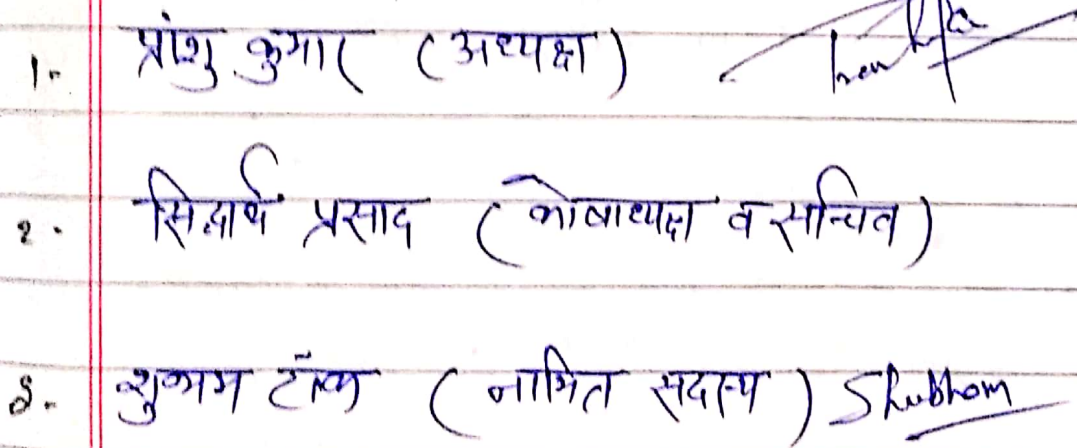 1. प्रांशु कुमार (अध्यक्ष)
२. सिद्धार्थ प्रसाद (कोषाध्यक्ष व सचिव)
३. शुभम टॉक (नामित सदस्य) Shubham